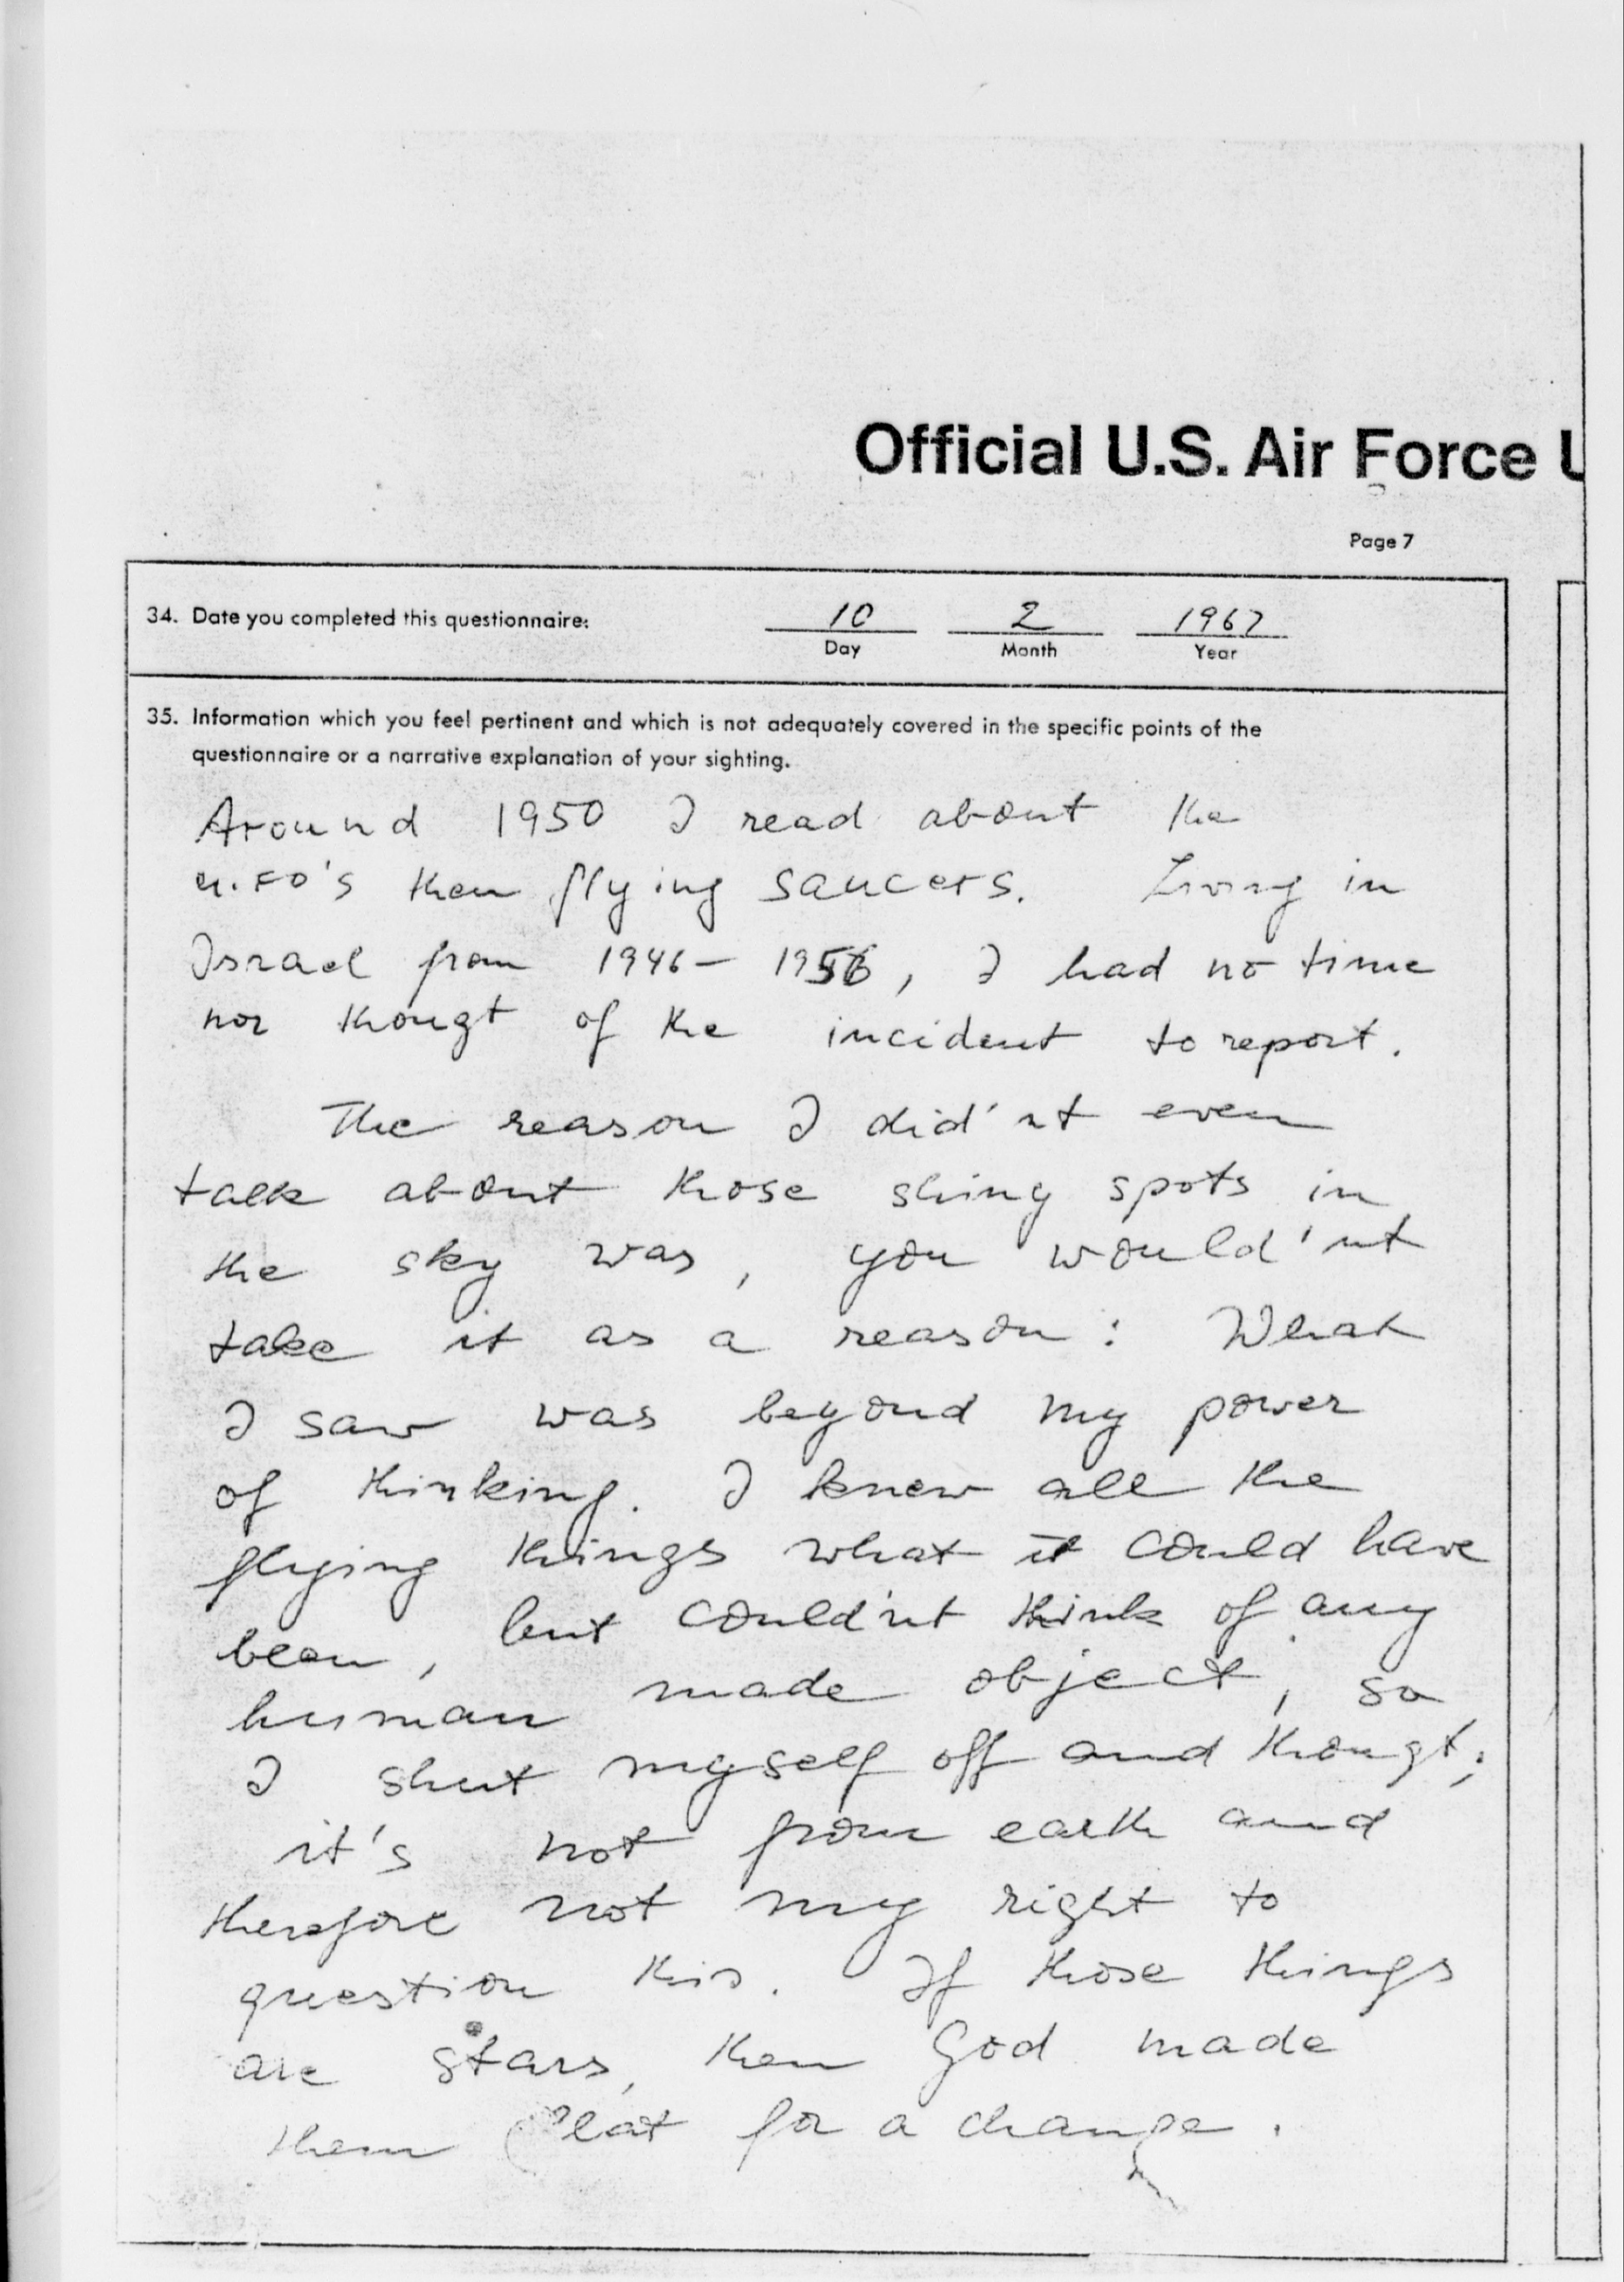 Official U.S. Air Force U
Page 7
34. Date you completed this questionnaire: 10 2 1967
Day Month Year
35. Information which you feel pertinent and which is not adequately covered in the specific points of the
questionnaire or a narrative explanation of your sighting.
Around 1950 I read about the
U.FO's then flying saucers. Living in
Israel from 1946 - 1956, I had no time
nor thougt of the incident to report.
The reason I did'nt even
talk about those shiny spots in
the sky was, you would'nt
take it as a reason: What
I saw was beyond my power
of thinking. I knew all the
flying things what it could have
been, but could'nt think of any
human made object, so
I shut myself off and thougt;
it's not from earth and
therefore not my right to
question this. If those things
are stars, then God made
them flat for a change.